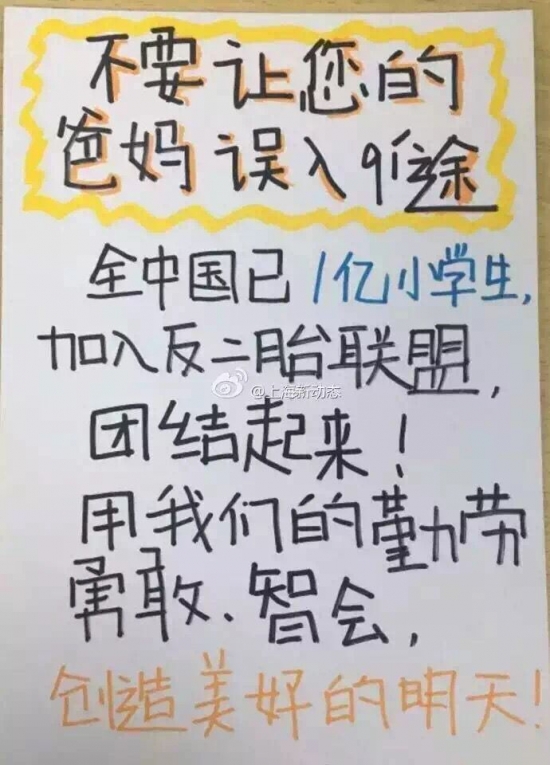 不要让您的
爸妈误入途
全中国已1亿小学生,
加入反二胎联盟,
@上海新动态
团结起来!
用我们的勤劳
勇敢、智会,
创造美好的明天!